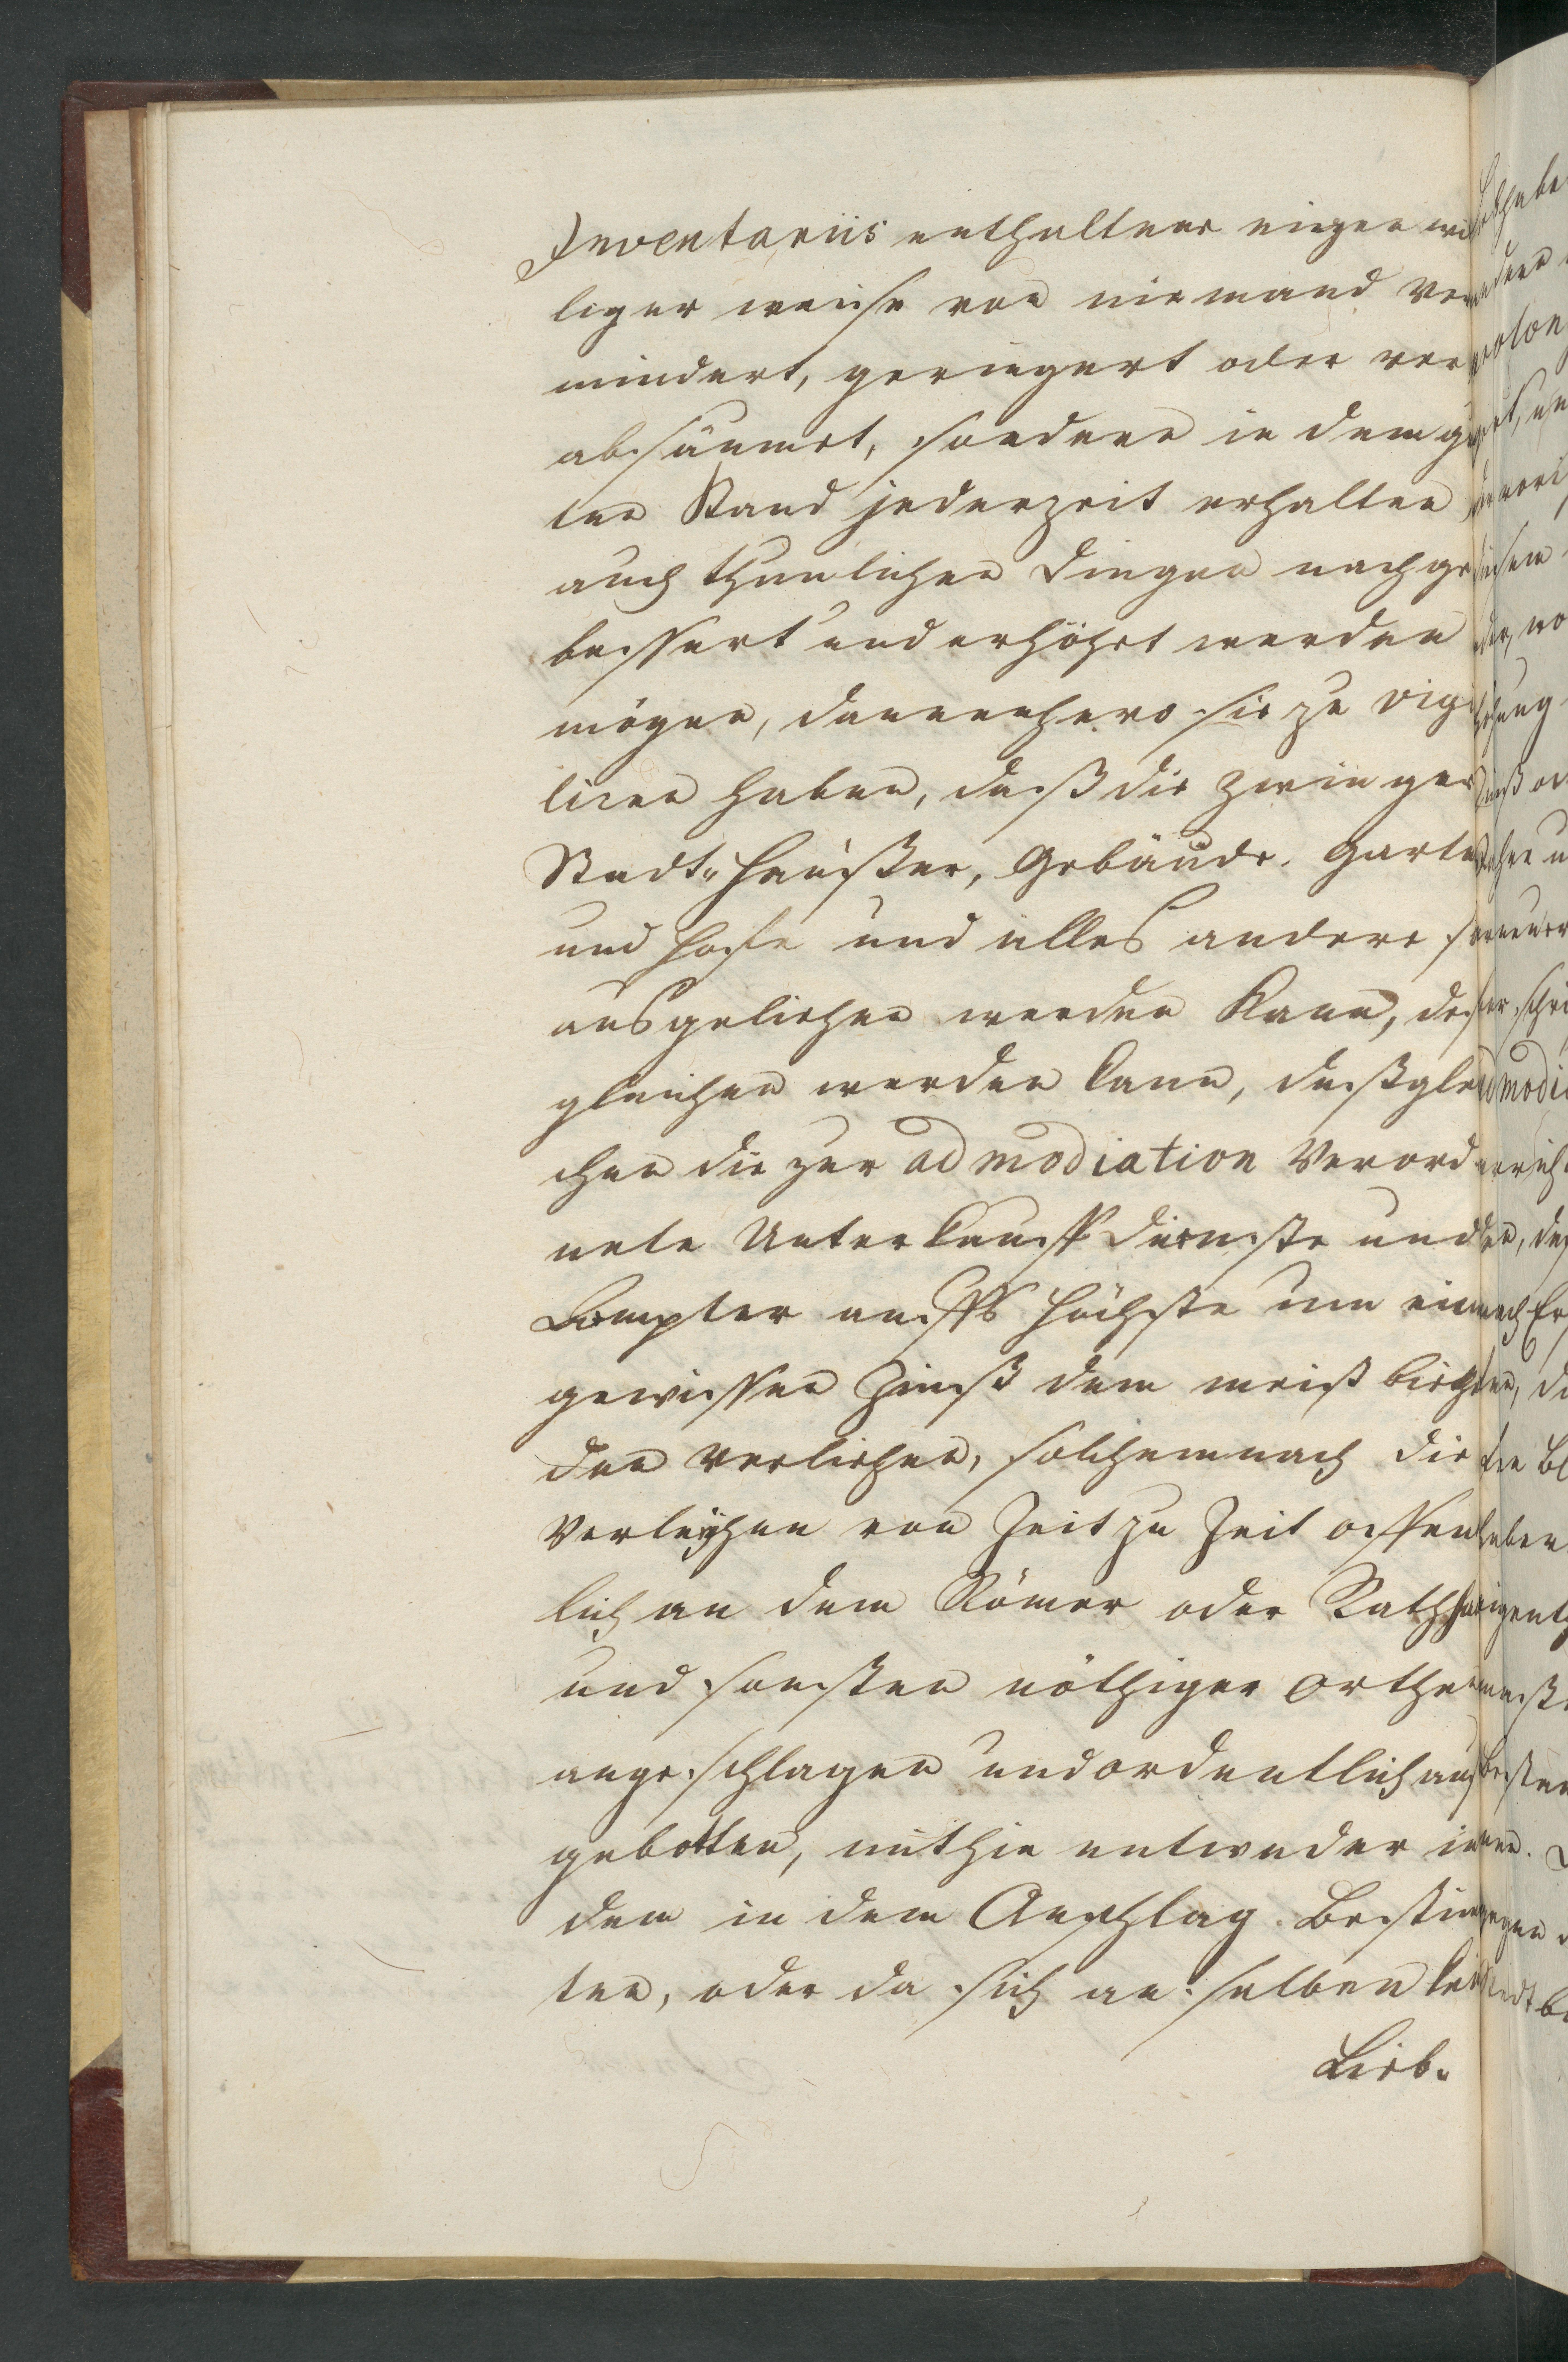 Inventariis enthaltene eigenwil
liger weiße von niemand ver
mindert, geringert oder ver
absäumet, sondern in dem gu
ten Stand jederzeit erhalten
auch thunlichen Dingen nach ge
bessert und erhöhet werden
mögen, dannenhero sie zu vigi
liren haben, daß die Zwinger
Stadt„Häußer, Gebäude. Garten
und Höfe und alles andere so
ausgeliehen werden kann, des
gleichen werden kann, deßglei
chen die zur admodiation verord
nete Unterkauff Dienste und
Aempter auffs höchste um einen
gewissen Zinß dem meist biethen
den verliehen, solchemnach die
Verleyhen von Zeit zu Zeit offent
lich an dem Römer oder Rathhaus
und sonsten nöthiger Orthen
angeschlagen und ordentlich aus
gebotten, mithin entweder in
dem in dem Anschlag. Bestim
ten, oder da sich an selben kei
Lieb„